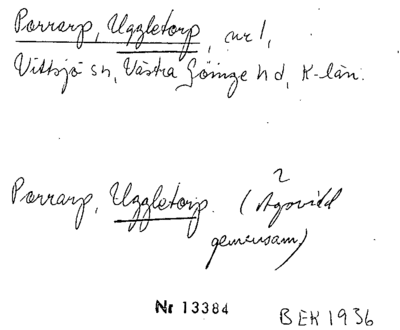 Porrarp, Uggletorp, nr 1,
Vittsjö sn, Västra Göinge hd, K-län.
2
Porrarp, Uggletorp. (Ägovidd
gemensam)
Nr 13384
BEK 1936